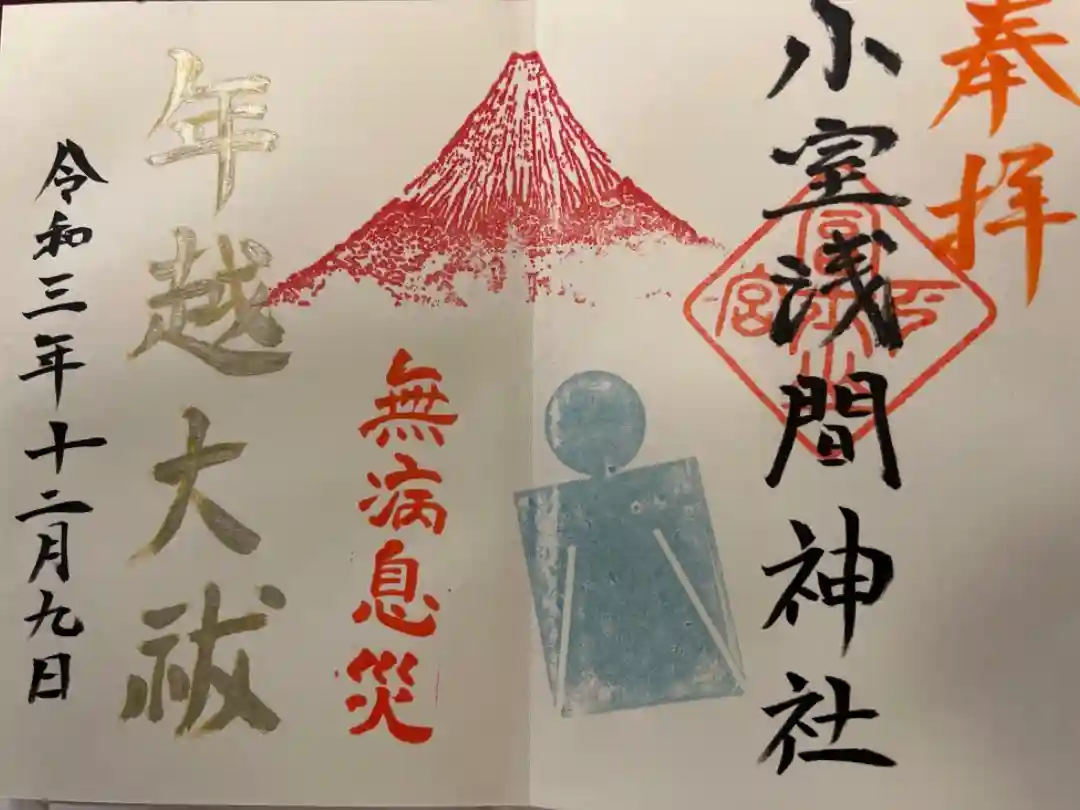 奉拝
小室浅間神社
無病息災
年越大祓
令和三年十二月九日